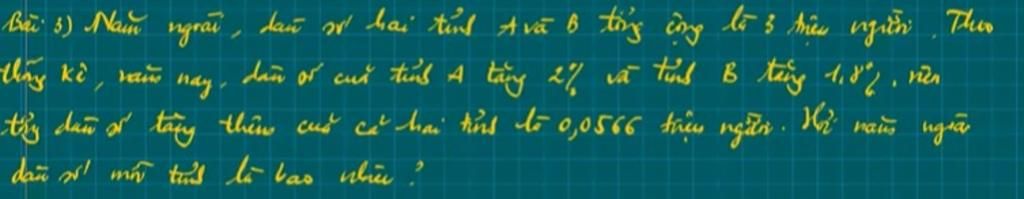 Bài 3) Năm ngoái, dân số hai tỉnh A và B tổng cộng là 3 triệu người. Theo
thống kê, năm nay, dân số của tỉnh A tăng 2% và tỉnh B tăng 1,8%, nên
tổng dân số tăng thêm của cả hai tỉnh là 0,0566 triệu người. Hỏi năm ngoái
dân số mỗi tỉnh là bao nhiêu?